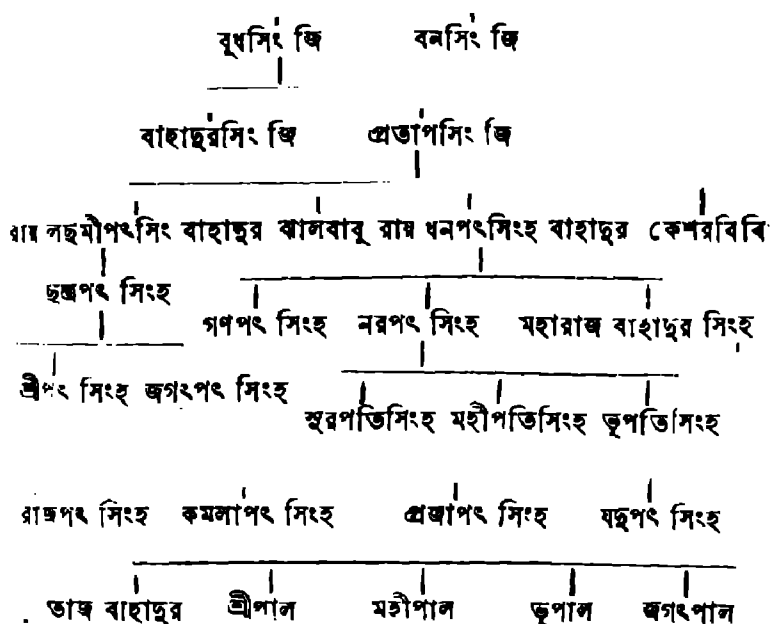 বুধসিং জি বনসিং জি
বাহাদুরসিং জি প্রতাপসিং জি
রায় লছমীপৎসিং বাহাদুর ঝালবাবু রায় ধনপৎসিংহ বাহাদুর কেশরবিবি
ছত্রপৎ সিংহ
গণপৎ সিংহ নরপৎ সিংহ মহারাজ বাহাদুর সিংহ
শ্রীপৎ সিংহ জগৎপৎ সিংহ
সুরপতিসিংহ মহীপতিসিংহ ভূপতিসিংহ
রাজপৎ সিংহ কমলাপৎ সিংহ প্রজাপৎ সিংহ যদুপৎ সিংহ
তাজ বাহাদুর শ্রীপাল মহীপাল ভূপাল জগৎপাল